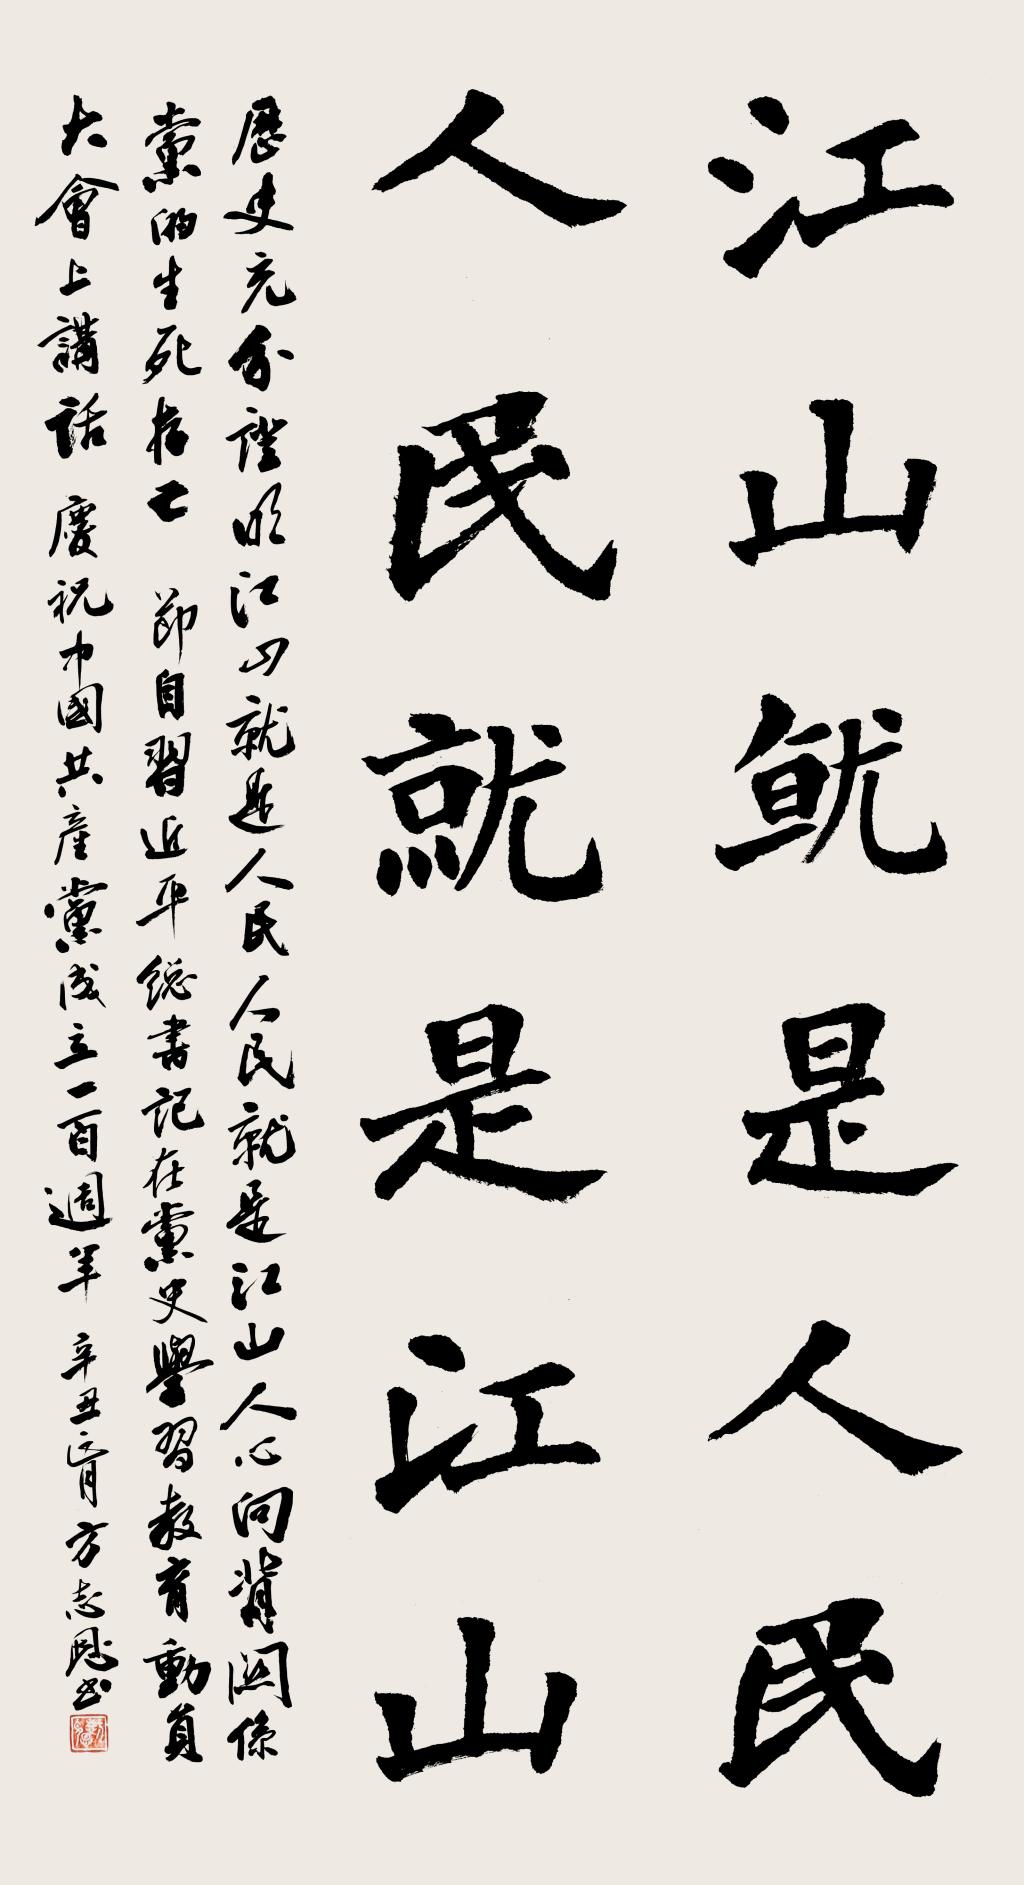 江山就是人民
人民就是江山
歷史充分證明江山就是人民人民就是江山人心向背關係
黨的生死存亡 節自習近平總書記在黨史學習教育動員
大會上講話 慶祝中國共產黨成立一百週年 辛丑 方志恩書